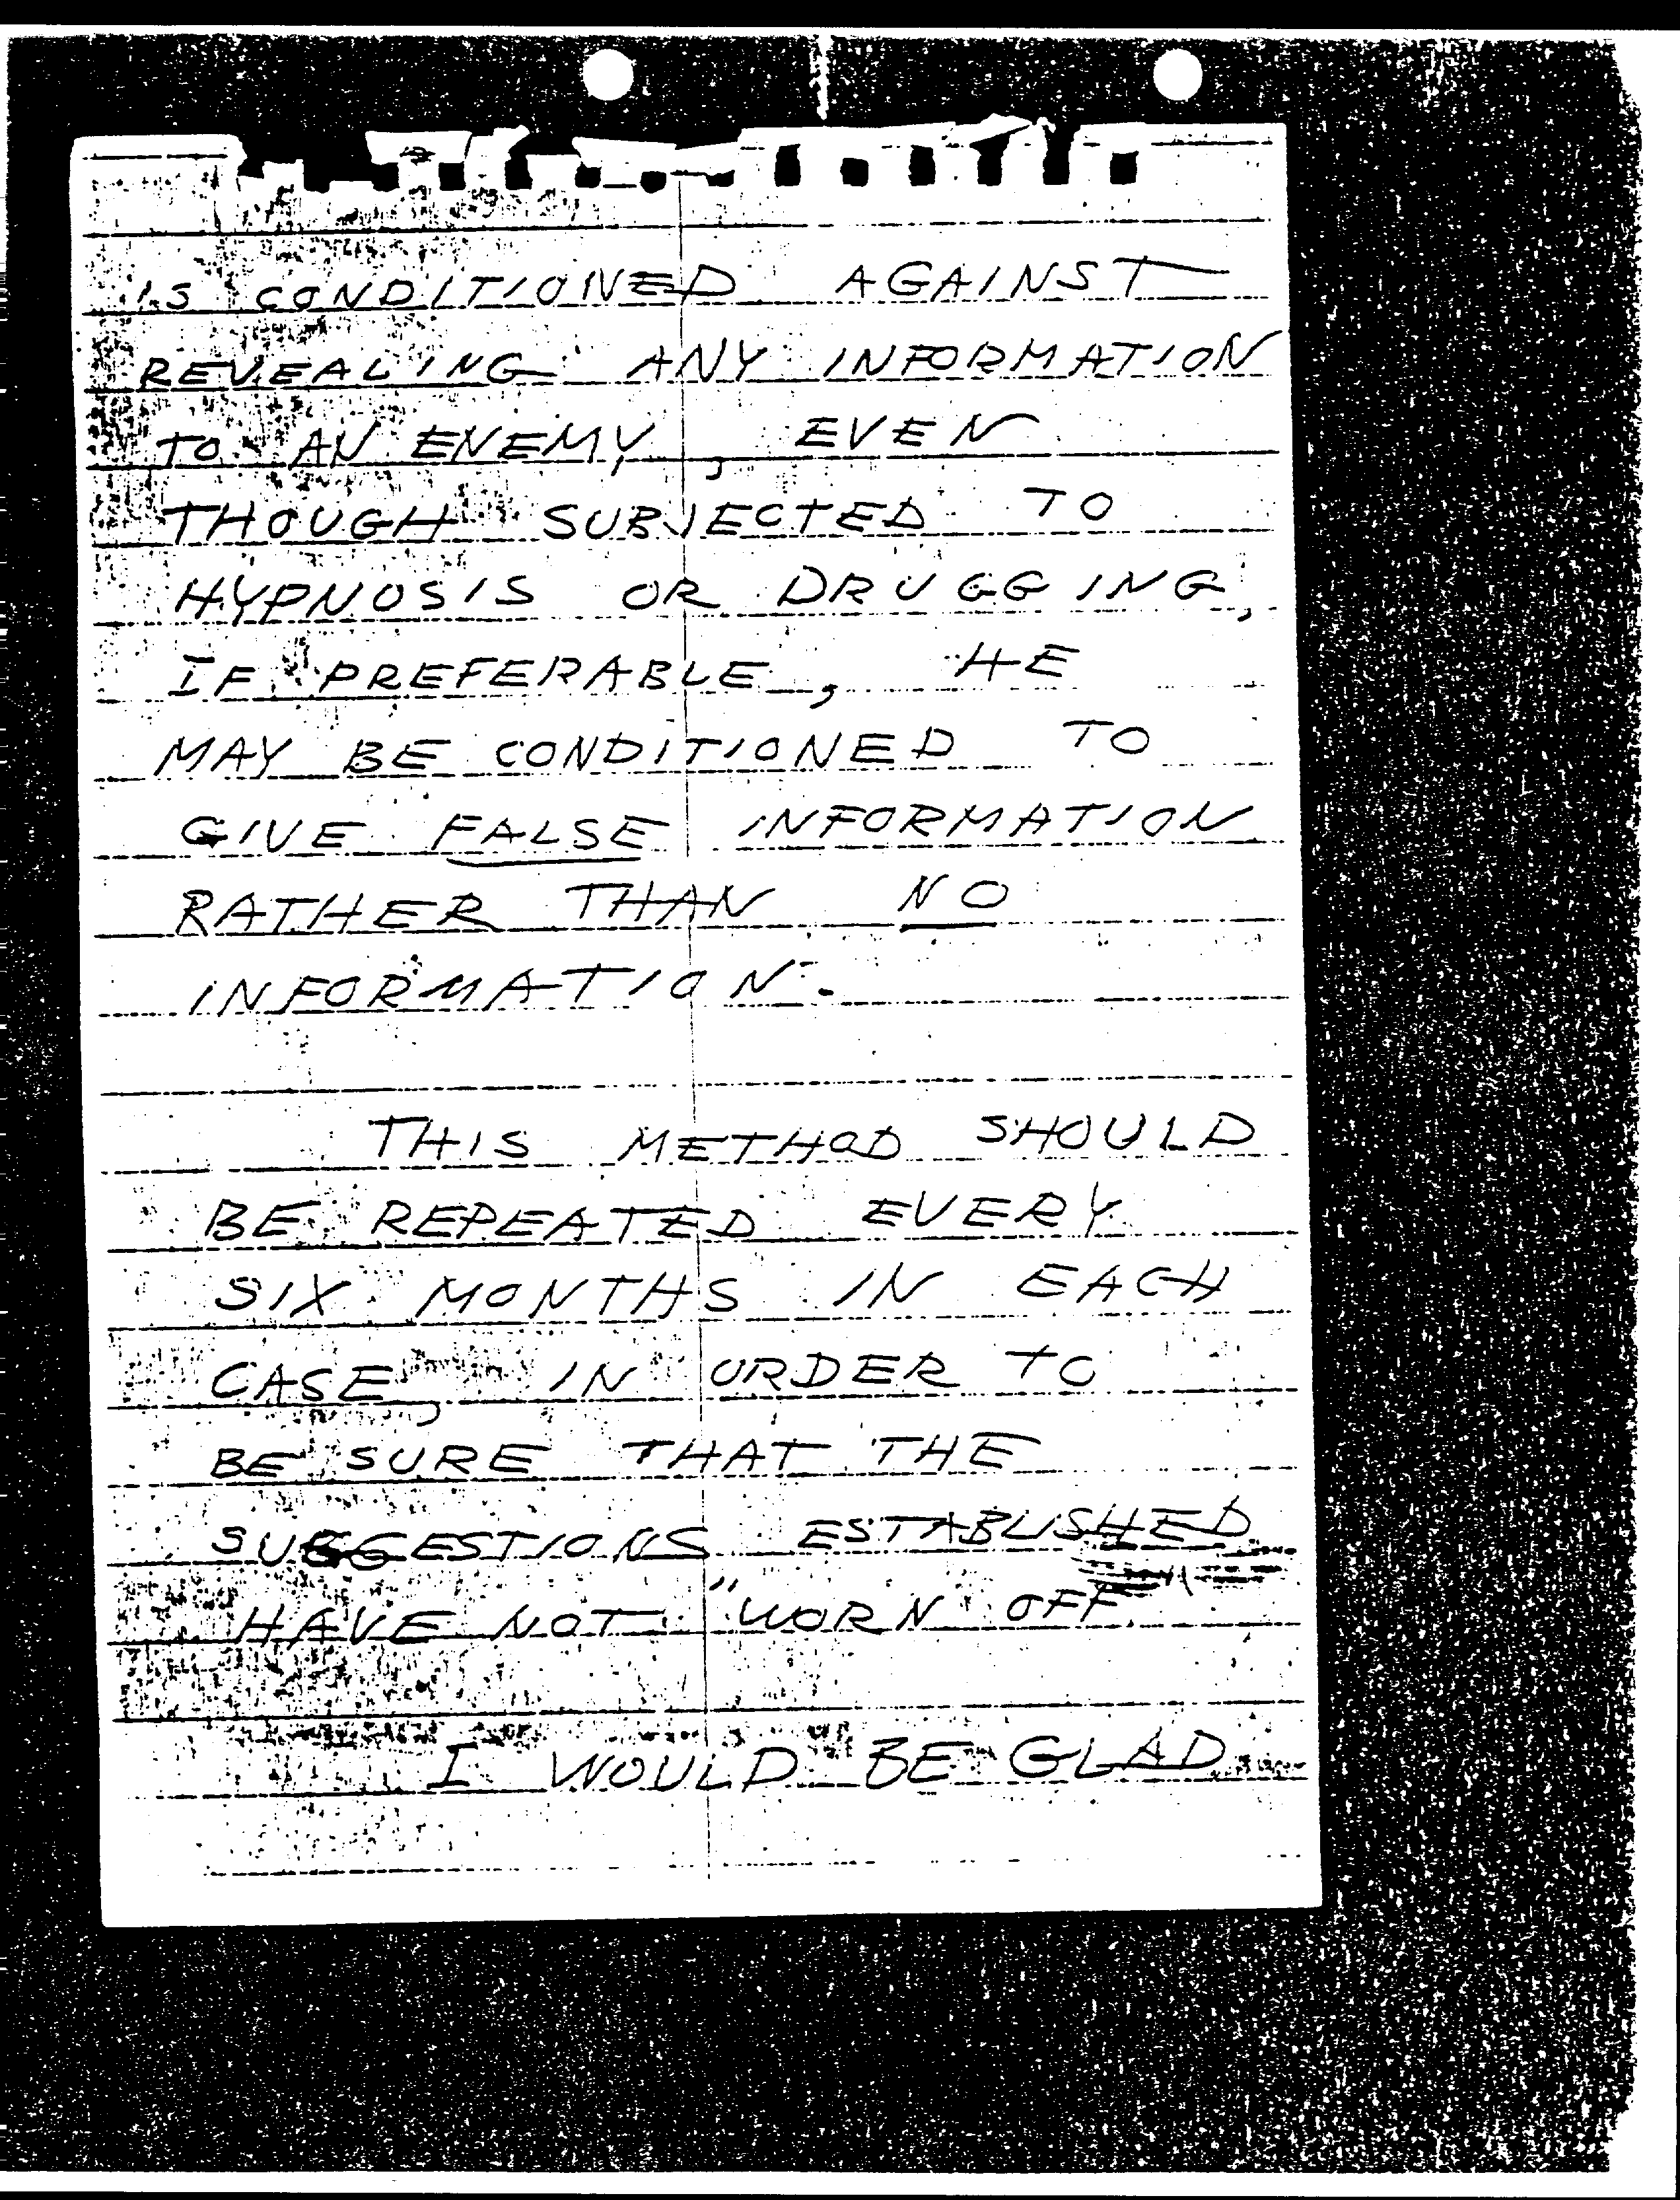 IS CONDITIONED AGAINST
REVEALING ANY INFORMATION
TO AN ENEMY, EVEN
THOUGH SUBJECTED TO
HYPNOSIS OR DRUGGING,
IF PREFERABLE, HE
MAY BE CONDITIONED TO
GIVE FALSE INFORMATION
RATHER THAN NO
INFORMATION.
THIS METHOD SHOULD
BE REPEATED EVERY
SIX MONTHS IN EACH
CASE, IN ORDER TO
BE SURE THAT THE
SUGGESTIONS ESTABLISHED
HAVE NOT "WORN OFF".
I WOULD BE GLAD